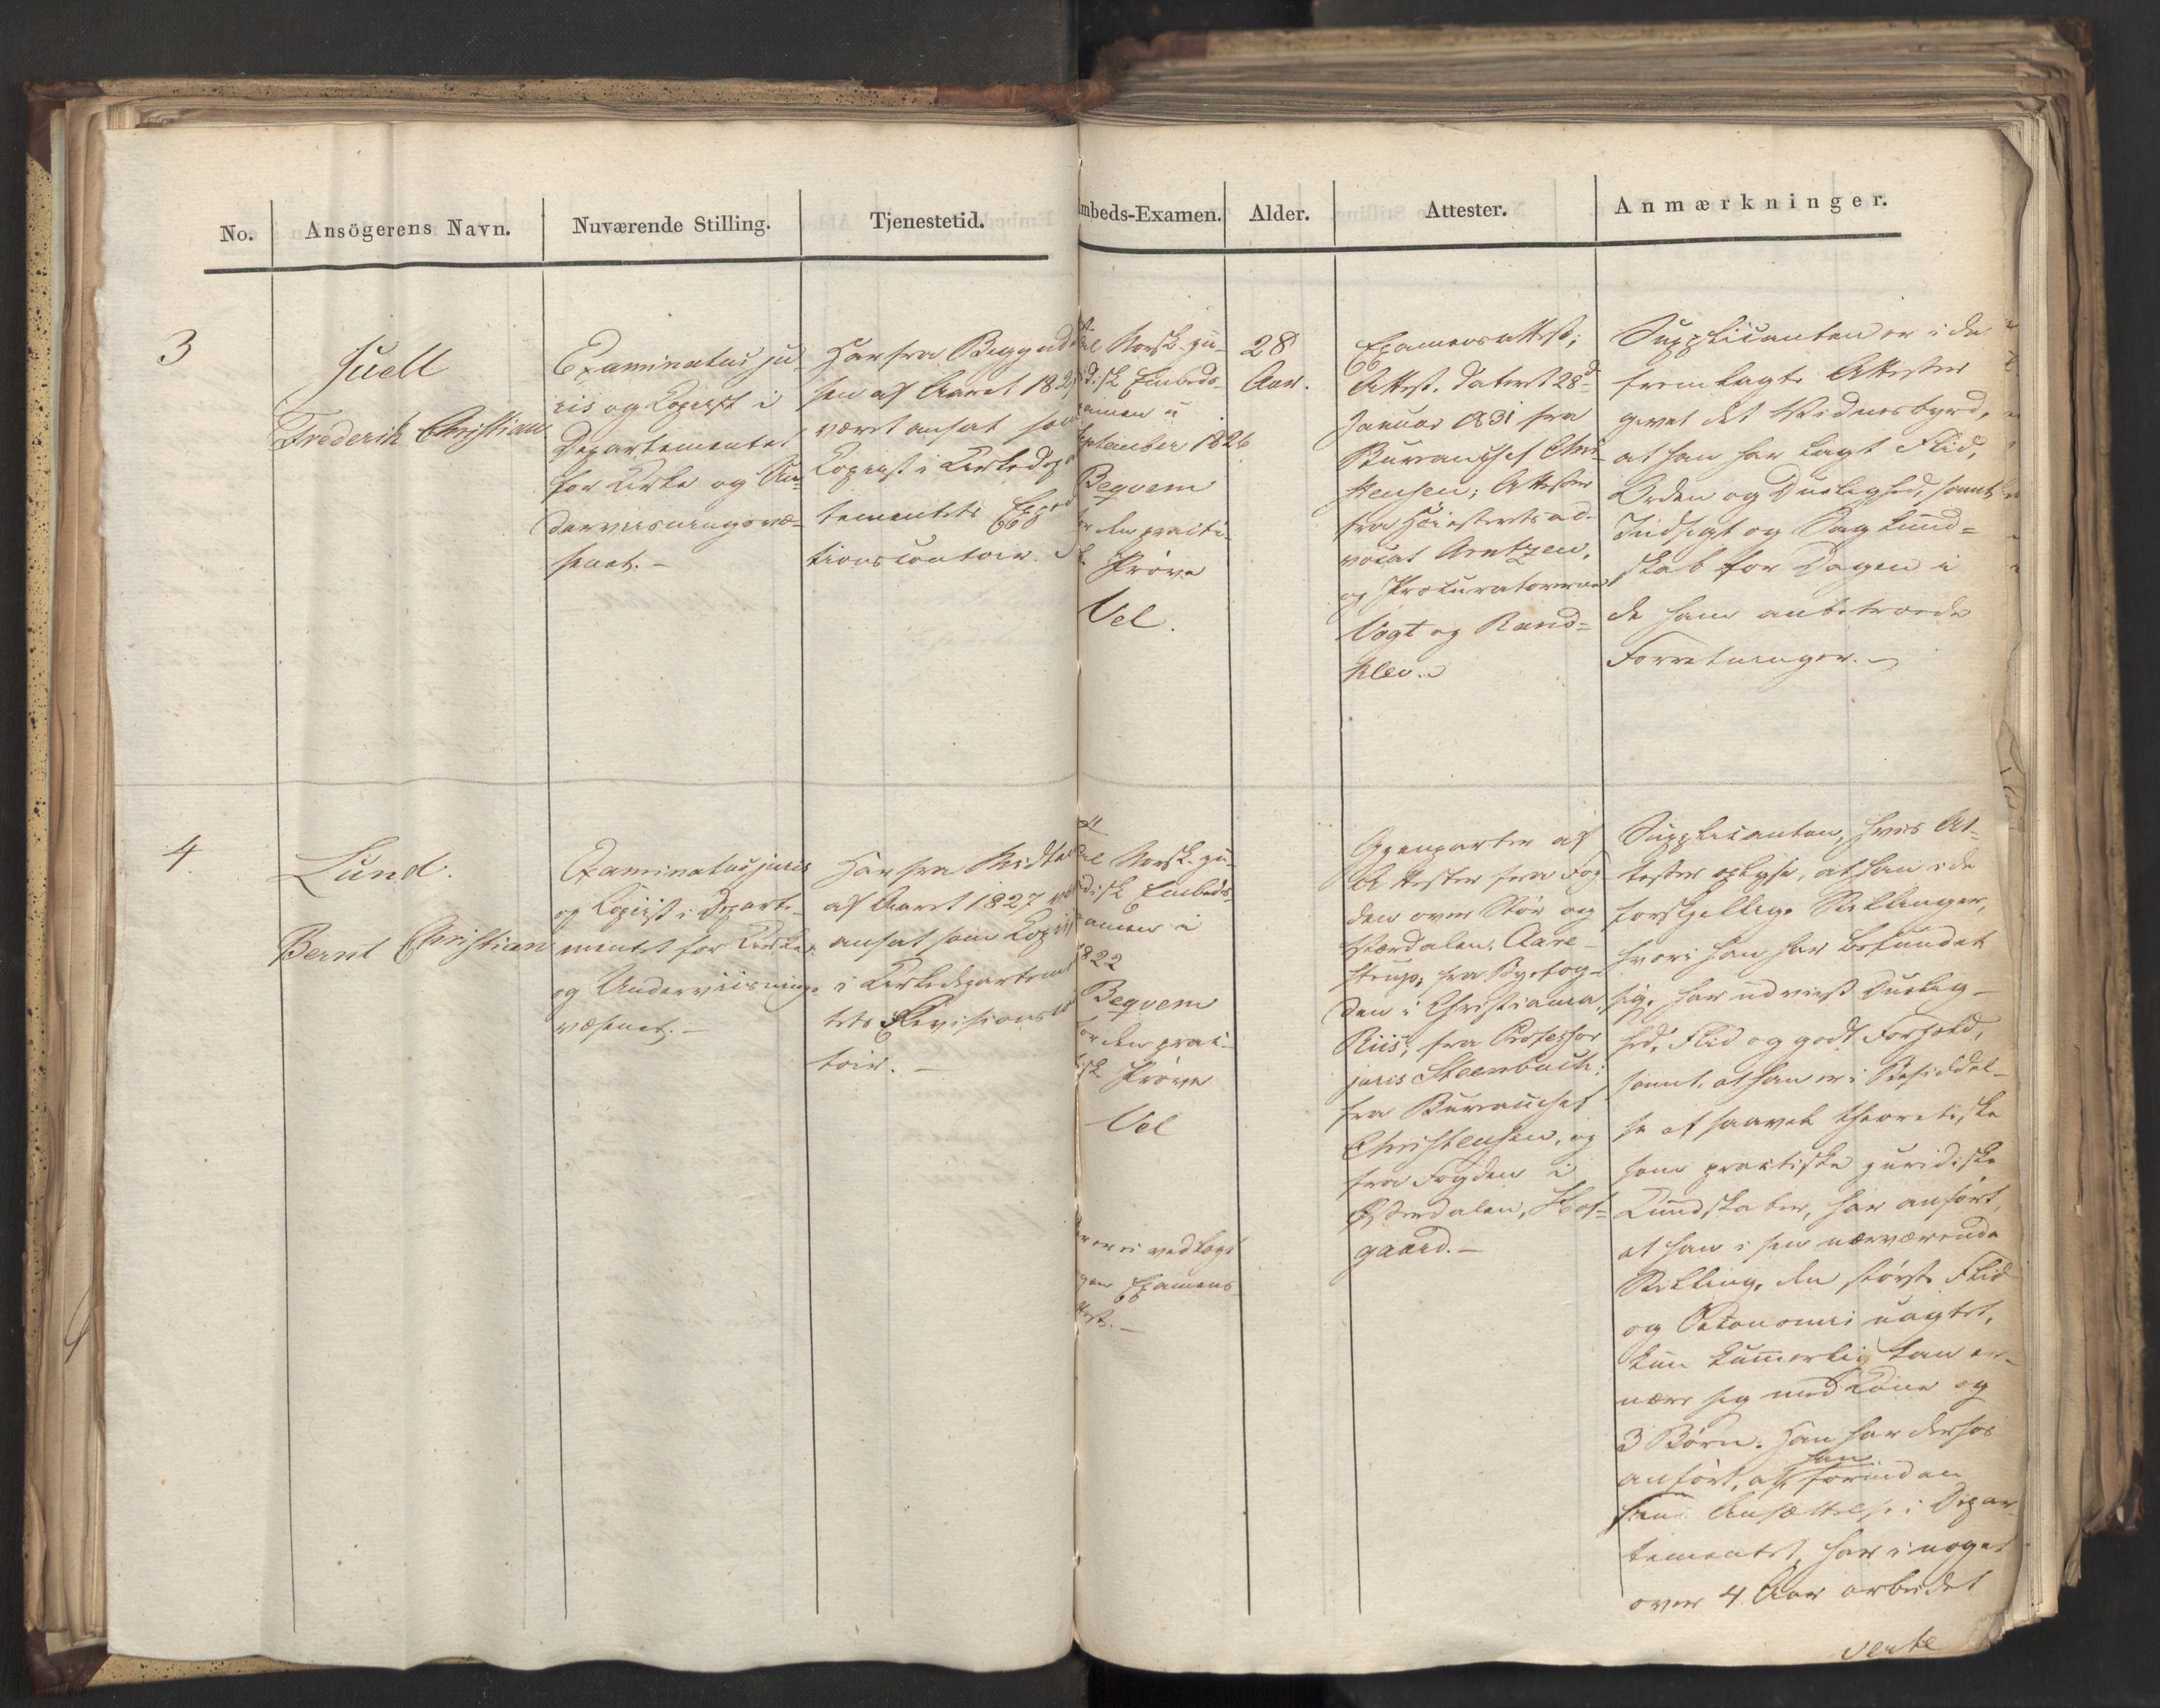 No.
Ansögerens Navn.
Nuværende Stilling.
Tjenestetid.
mbeds-Examen.
Alder.
Attester.
Anmærkninger.
3
Juell
Frederik Christian
Examinatus ju-
ris og Copiist i
Departementet
for Kirke og Un-
derviisningsvæ-
senet.-
Har fra Begynd
sen af Aaret 182
været ansat som
Copiist i Kirkedepa
tementets Exped
tionscontoir.
Norsk-ju-
disk Embeds-
amen i
eptember 1826
Beqvem
den practi-
Prøve
Vel.
28
Aar.
Examensattest;
Attest, dateret 28d
Januar 1831 fra
Bureauchef Chri-
stensen; Attester
fra Høiesteretsad-
vocat Arntzen,
og Procuratorerne
Vogt og Rand-
klev.
Supplicanten er i de
fremlagte Attester
givet det Vidnesbyrd,
at han har lagt Flid,
Orden og Duelighed, samt
Indsigt og Sagkund-
skab for Dagen i
de ham anbetroede
Forretninger.
4.
Lund.
Bernt Christian
Examinatus juris
og Copiist i Departe-
mentet for Kirke-
og Underviisnings-
væsenet.-
Har fra Midten
af Aaret 1827 været
ansat som Copiist
i Kirkedepartemen
tets Revisionscon
toir.-
Norsk-ju-
disk Embeds-
amen i
1822
Beqvem
den prac-
tisk Prøve
Vel
er ei vedlagt
Examens
ttest.-
Gjenparter af
Attester fra Fog-
den over Stør og
Værdalen, Aare-
strup; fra Byefog-
den i Christiania,
Riis; fra Professor
juris Steenbuch;
fra Bureauchef
Christensen, og
fra Fogden i
Østerdalen,
gaard.-
Supplicanten, hvis At-
tester oplyse, at han i de
forskjellige Stillinger,
hvori han har befundet
sig, har udviist Duelig-
hed, Flid og godt Forhold,
samt, at han er i Besiddel-
se af saavel theoretiske
som practiske juridiske
Kundskaber, har anført,
at han i sin nærværende
Stilling, den største Flid
og Oekonomi uagtet,
kun kummerlig kan er-
nære sig med Kone og
3 Børn. Han har derhos
anført, at han forinden
sin Ansættelse i Depar-
tementet, har i noget
over 4 Aar arbeidet
verte